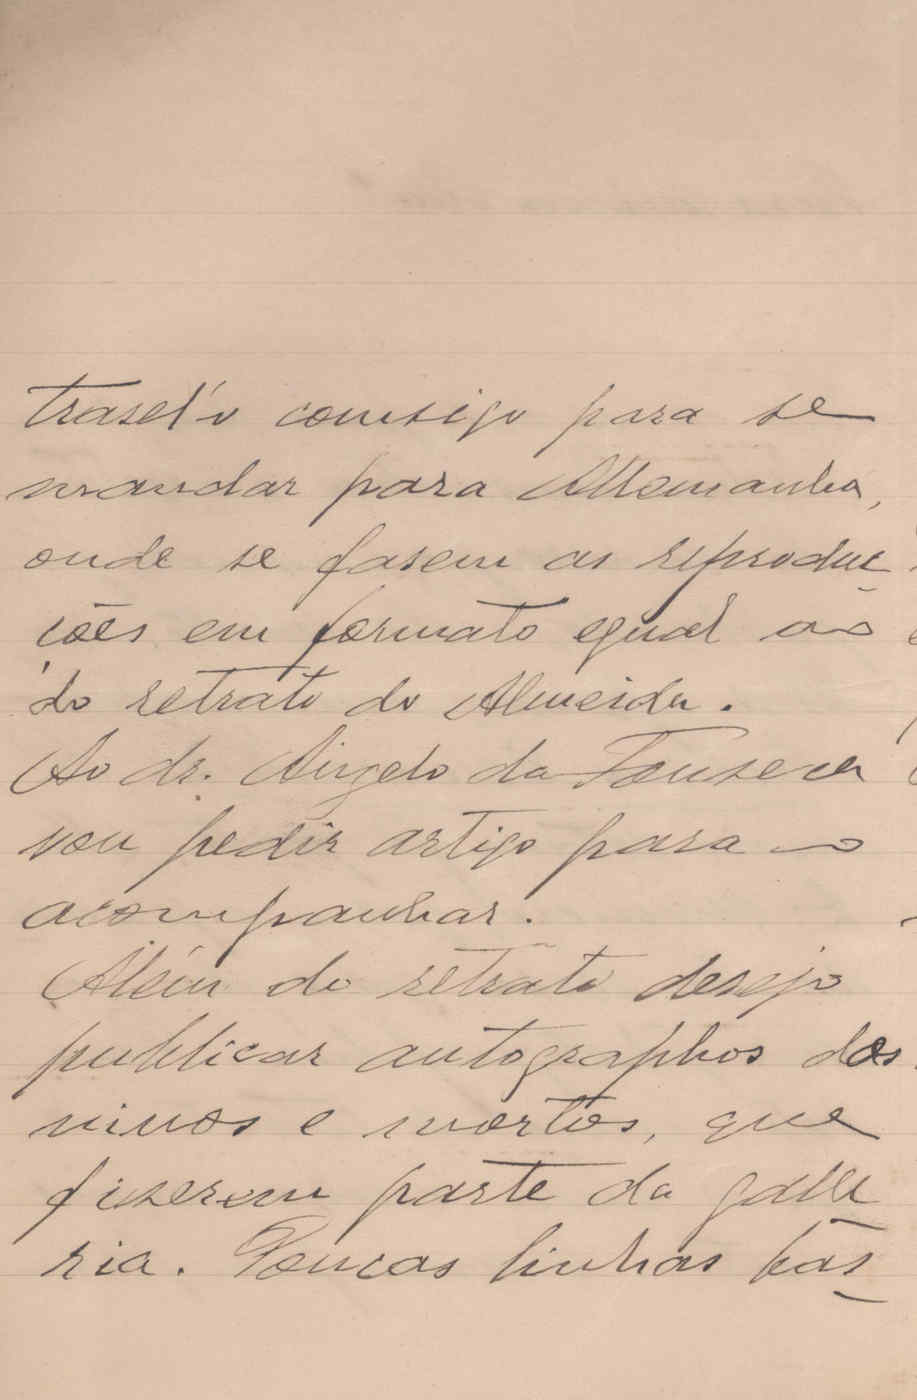 trasel'o comsigo para se
mandar para Allemanha,
onde se fasem as reproduc
ções em formato egual ao
do retrato do Almeida.
Ao dr. Angelo da Fonseca
vou pedir artigo para o
acompanhar.
Além do retrato desejo
publicar autographos dos
vivos e mortos, que
fizerem parte da galle
ria. Poucas linhas bas